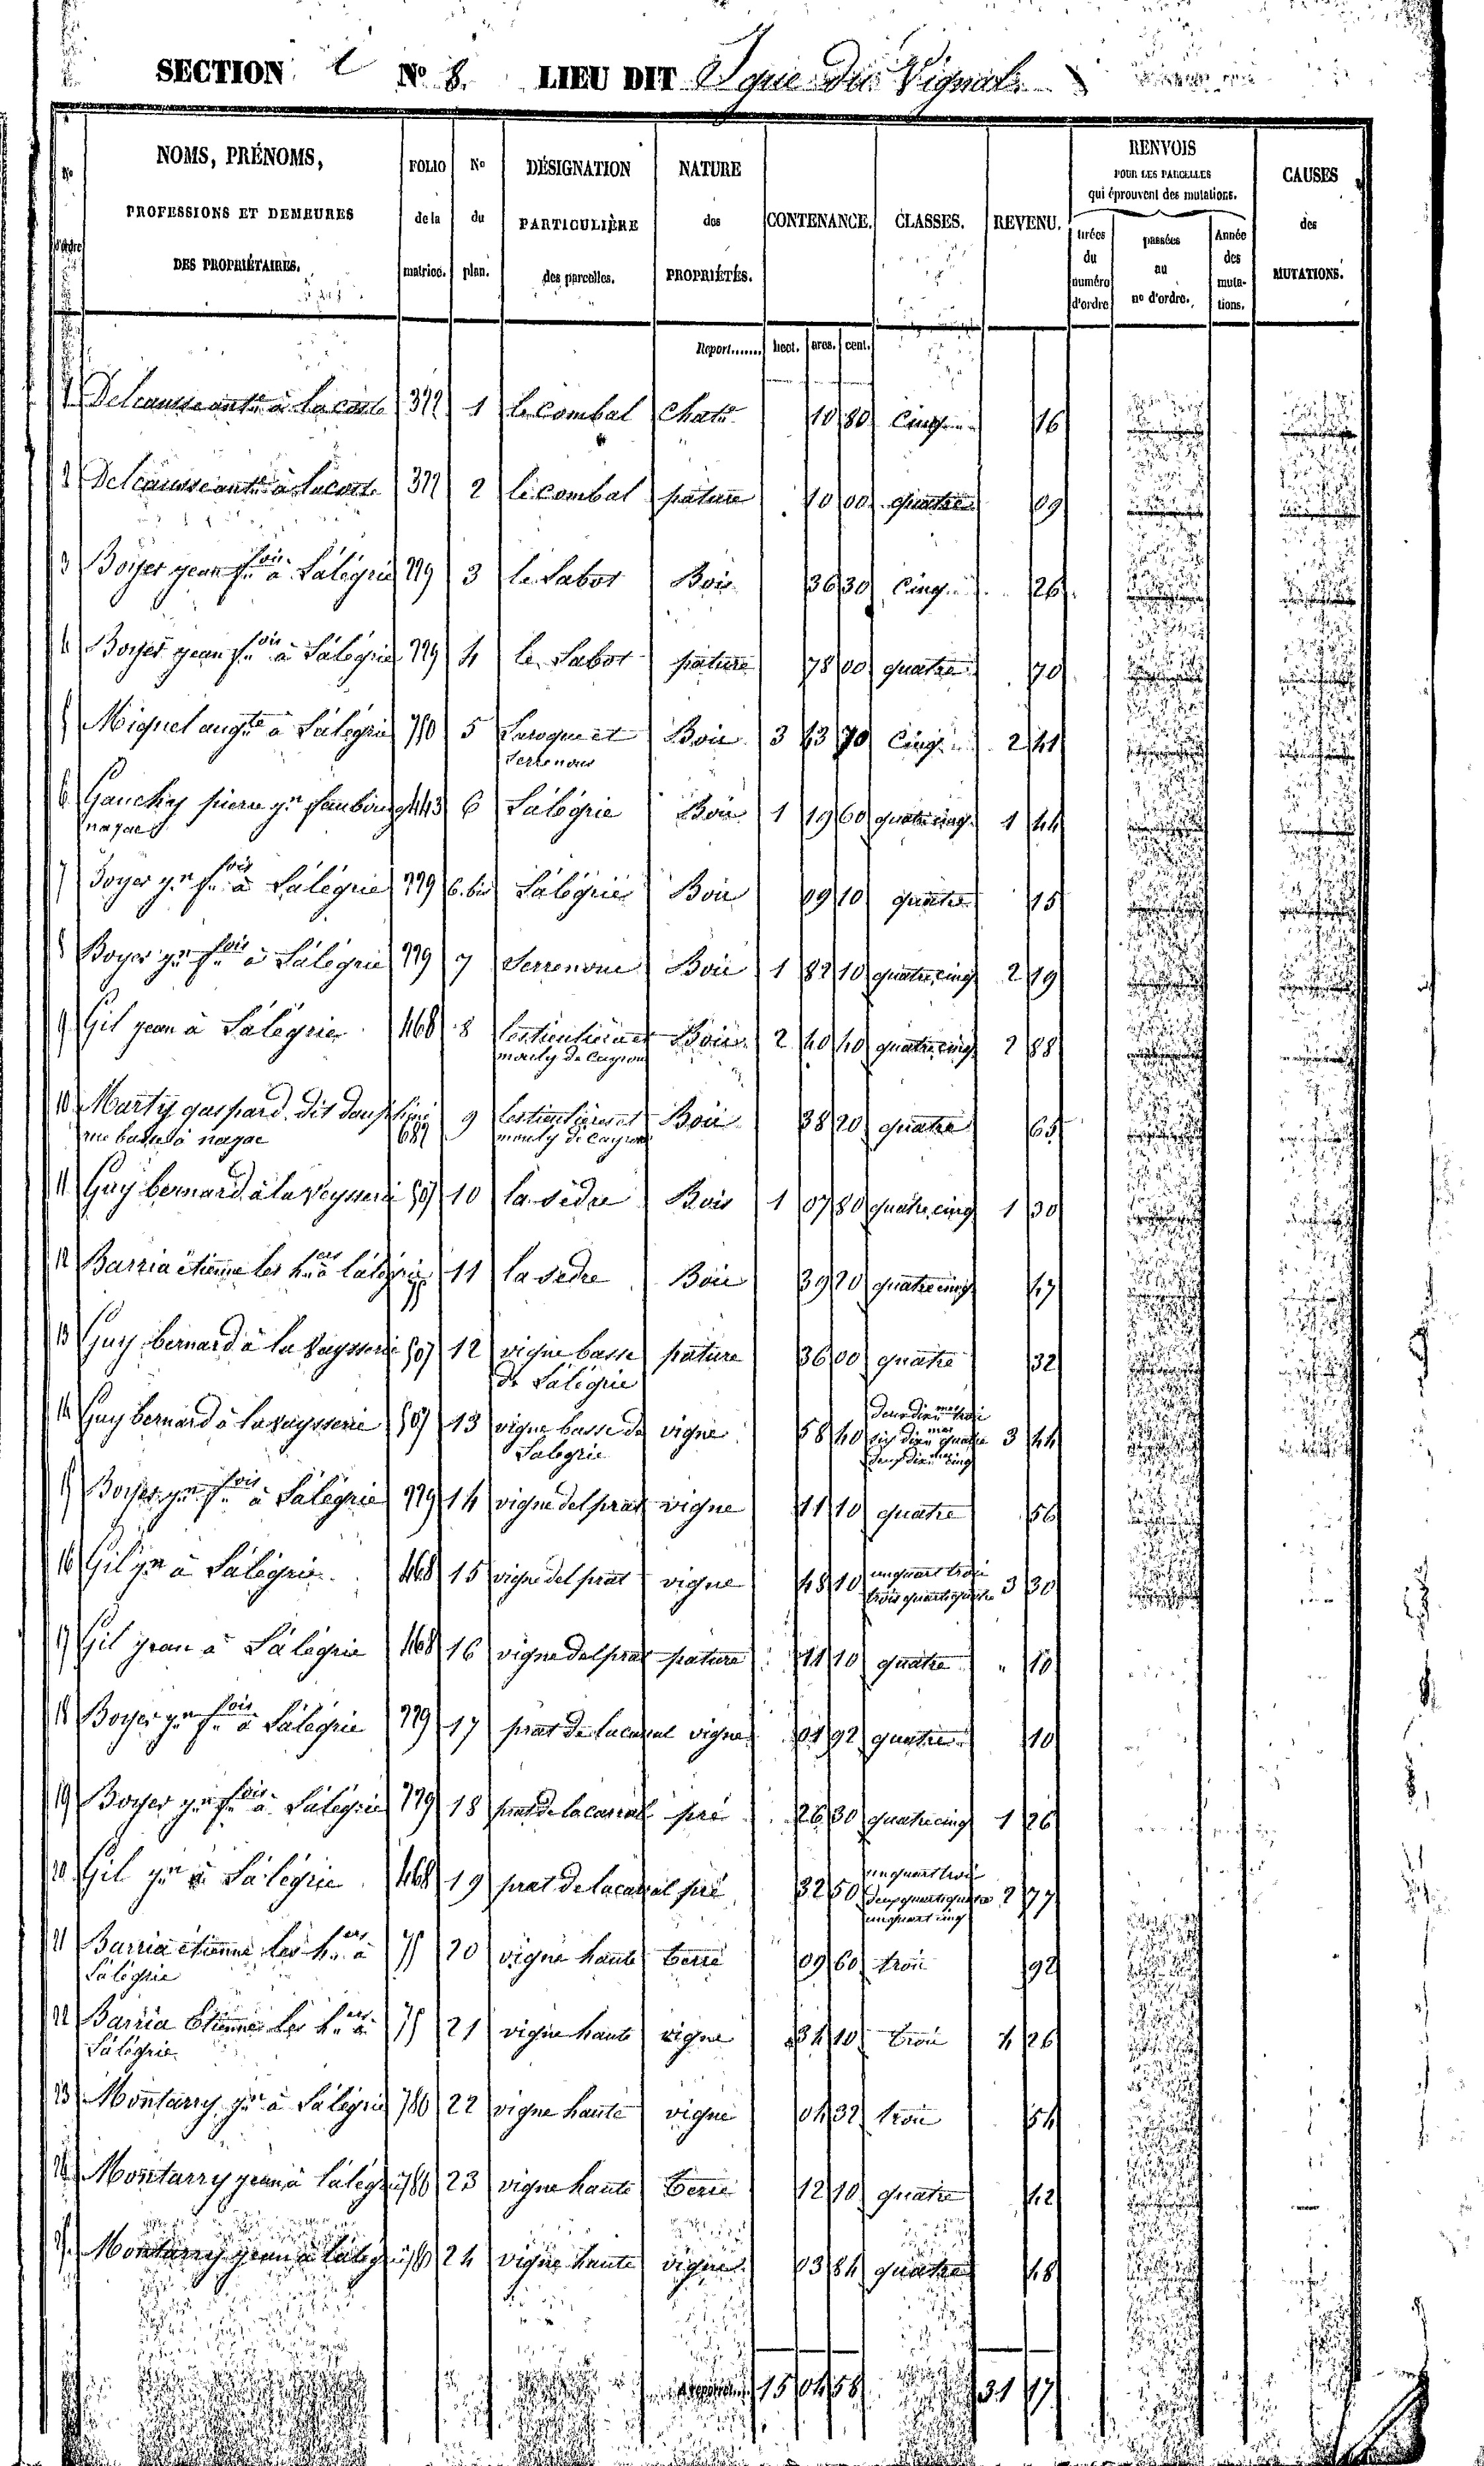 SECTION N° 8. LIEU DIT Sque du Vignal
N° d'ordre
NOMS, PRÉNOMS,
PROFESSIONS ET DEMEURES
DES PROPRIÉTAIRES.
FOLIO de la matrice.
N° du plan.
DÉSIGNATION PARTICULIÈRE des parcelles.
NATURE des PROPRIÉTÉS.
CONTENANCE.
CLASSES.
REVENU.
RENVOIS
POUR LES PARCELLES
qui éprouvent des mutations.
tirées du numéro d'ordre
passées au n° d'ordre.
Année des mutations.
CAUSES des MUTATIONS.
Report....... hect. ares. cent.
1 Delcausse ante à Lacoste 322 1 le Combal Chatr 10 80 Cinq 16
2 Delcausse ante à Lacoste 322 2 le Combal pature 10 00 quatre 09
3 Boyer jean fois à Salégrie 229 3 le Sabot Bois 36 30 Cinq 26
4 Boyer jean fois à Salégrie 229 4 le Sabot pature 78 00 quatre 70
5 Miquel augte à Salégrie 750 5 Laroque et Bois 3 43 70 Cinq 2 41
Serrenous
6 Gauchy pierre jn faubourg 443 6 Salégrie Bois 1 19 60 quatre cinq 1 44
najac
7 Boyer jn fois à Salégrie 229 6. bis Salégrie Bois 09 10 quatre 15
8 Boyer jn fois à Salégrie 229 7 Serrenous Bois 1 82 10 quatre, cinq 2 19
9 Gil jean à Salégrie 468 8 Bois 2 40 40 quatre cinq 2 88
mouly de Cayrou
10 Marty gaspard dit dauphiné 9 Bois 38 20 quatre 65
rue basse à najac 687 mouly de Cayrou
11 Guy bernard à la Veysserie 507 10 la Sedre Bois 1 07 80 quatre, cinq 1 30
12 Barria étienne les hers à Salégrie 75 11 la Sedre Bois 39 20 quatre cinq 47
13 Guy bernard à la Vaysserie 507 12 vigne basse pature 36 00 quatre 32
de Salégrie
14 Guy bernard à la Vaysserie 507 13 vigne basse de vigne 58 40 deux dixmes trois 3 44
Salegrie six dixmes quatre
deux dixmes cinq
15 Boyer jn fois à Salégrie 229 14 vigne del prat vigne 11 10 quatre 56
16 Gil jn à Salégrie 468 15 vigne del prat vigne 48 10 un quart trois 3 30
trois quarts quatre
17 Gil jean à Salégrie 468 16 vigne del prat pature 11 10 quatre " 10
18 Boyer jn fois à Salégrie 229 17 prat de lacaval vigne 01 92 quatre 10
19 Boyer jn fois à Salégrie 229 18 prat de lacaval pré 26 30 quatre cinq 1 26
20 Gil jn à Salégrie 468 19 prat de lacaval pré 32 50 un quart trois 2 77
deux quarts quatre
un quart cinq
21 Barria étienne les hers à 75 20 vigne haute terre 09 60 trois 92
Salégrie
22 Barria Etienne les hers à 75 21 vigne haute vigne 34 10 trois 4 26
Salégrie
23 Montarry jn à Salégrie 780 22 vigne haute vigne 04 32 trois 54
24 Montarry jean à Salégrie 780 23 vigne haute terre 12 10 quatre 42
25 Montarry jean à Salégrie 780 24 vigne haute vigne 03 84 quatre 48
A reporter 15 04 58 31 17